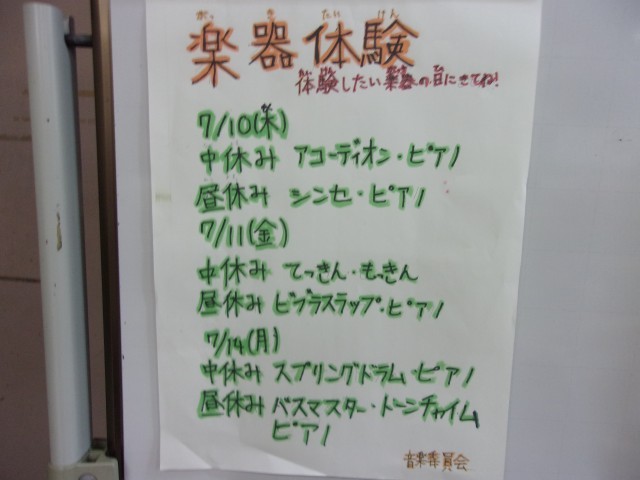 がっ き たい けん
楽器体験
体験したい楽器の日にきてね!
7/10(木)
中休み アコーディオン・ピアノ
昼休み シンセ・ピアノ
7/11(金)
中休み てっきん・もっきん
昼休み ビブラスラップ・ピアノ
7/14(月)
中休み スプリングドラム・ピアノ
昼休み バスマスター・トーンチャイム
ピアノ
音楽委員会